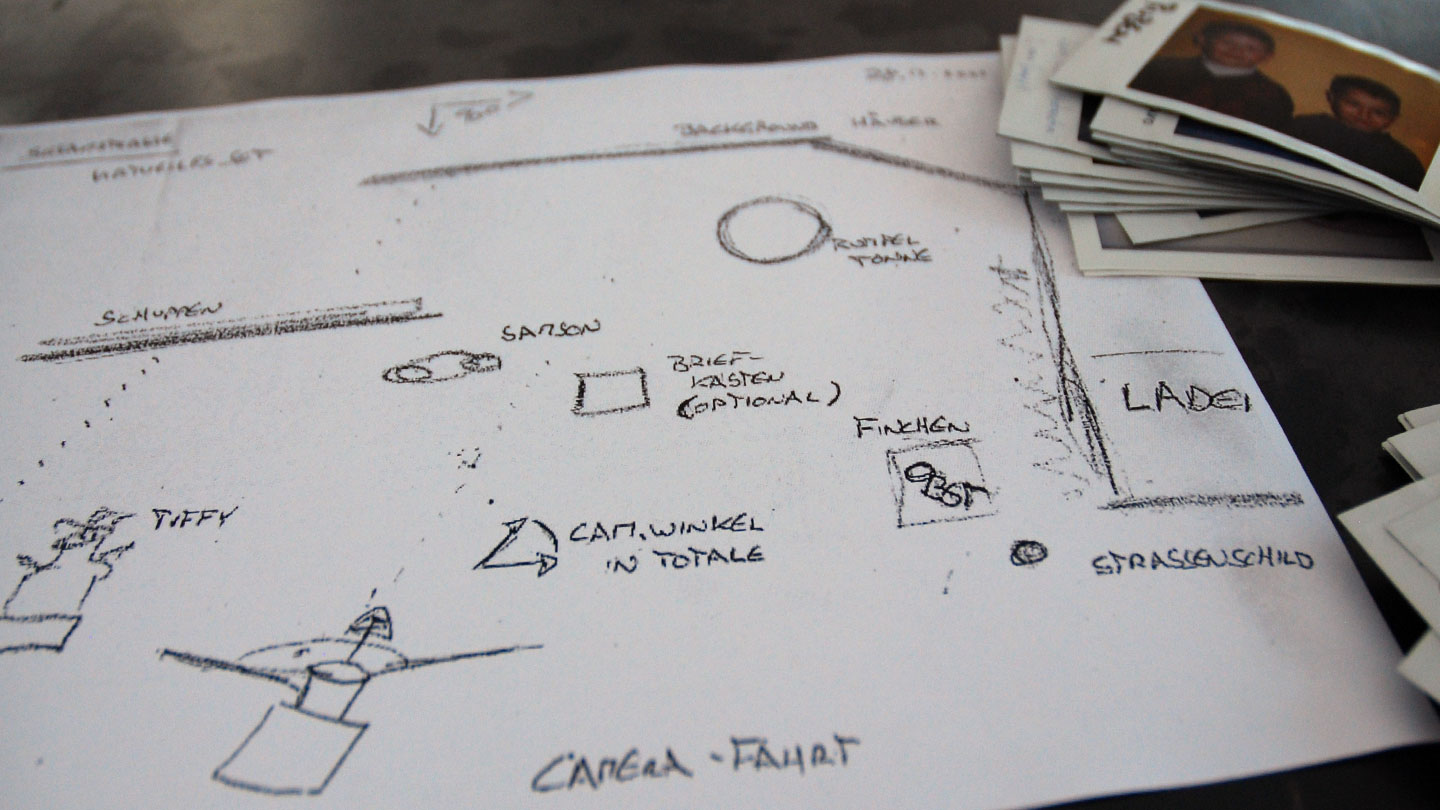 BACKGROUND HÄUSER
RUMPEL
TONNE
SCHUPPEN
SAMSON
BRIEF-
KASTEN
(OPTIONAL)
LADEN
FINCHEN
OBST
TIFFY
CAM.WINKEL
IN TOTALE
STRASSENSCHILD
CAMERA-FAHRT